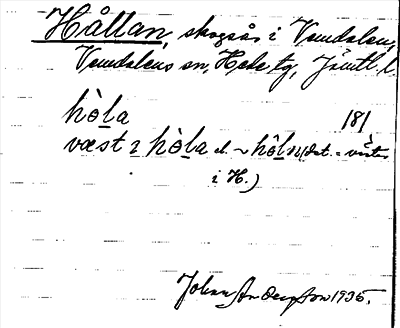 Hållan, skogsås i Vemdalen,
Vemdalens sn, Hede tg, Jämtl. l.
hò̱la 181
væst 2 hò̱la el. ~ hò̱ln (dat. = väster
i H.)
Johan Anderson 1935.